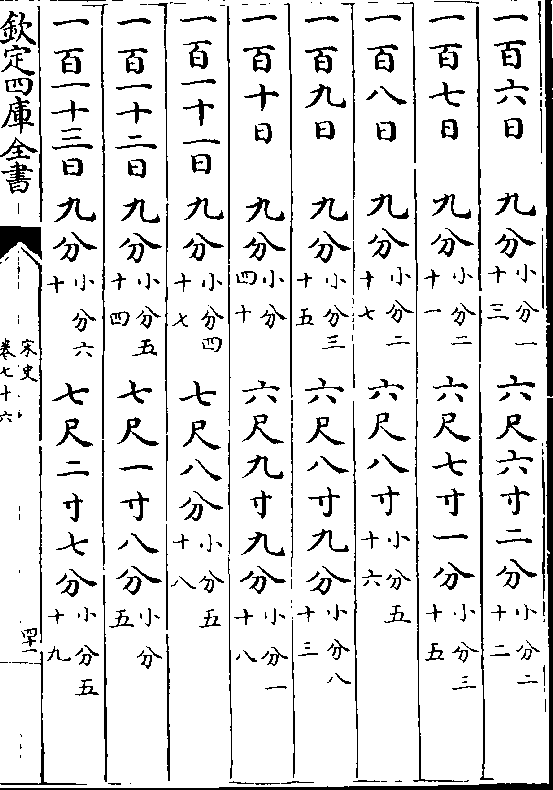 一百六日 九分小分一十三 六尺六寸二分小分二十二
一百七日 九分小分二十一 六尺七寸一分小分三十五
一百八日 九分小分二十七 六尺八寸小分五十六
一百九日 九分小分三十五 六尺八寸九分小分八十三
一百十日 九分小分四十 六尺九寸九分小分一十八
一百一十一日 九分小分四十七 七尺八分小分五十八
一百一十二日 九分小分五十四 七尺一寸八分小分五
一百一十三日 九分小分六十 七尺二寸七分小分五十九
欽定四庫全書
宋史
卷七十六